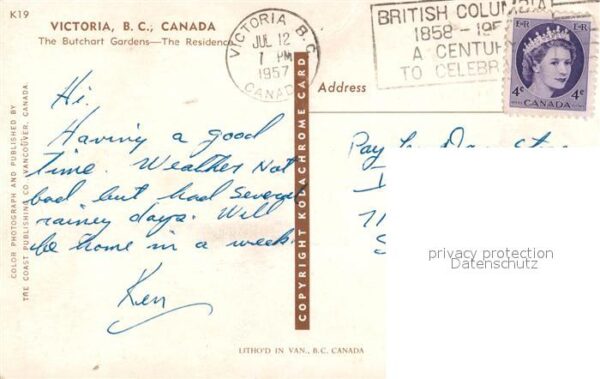 K19
VICTORIA, B. C., CANADA
The Butchart Gardens—The Residence
VICTORIA B.C.
JUL 12
7 PM
1957
CANADA
BRITISH COLUMBIA
1858 - 195
A CENTUR
TO CELEBRA
E R
E R
4¢
4¢
CANADA
Address
Hi.
Having a good
time. Weather Not
bad but had several
rainy days. Will
be home in a week.
Ken
Pay
COLOR PHOTOGRAPH AND PUBLISHED BY
THE COAST PUBLISHING CO. VANCOUVER, CANADA
COPYRIGHT KODACHROME CARD
privacy protection
Datenschutz
LITHO'D IN VAN., B.C. CANADA